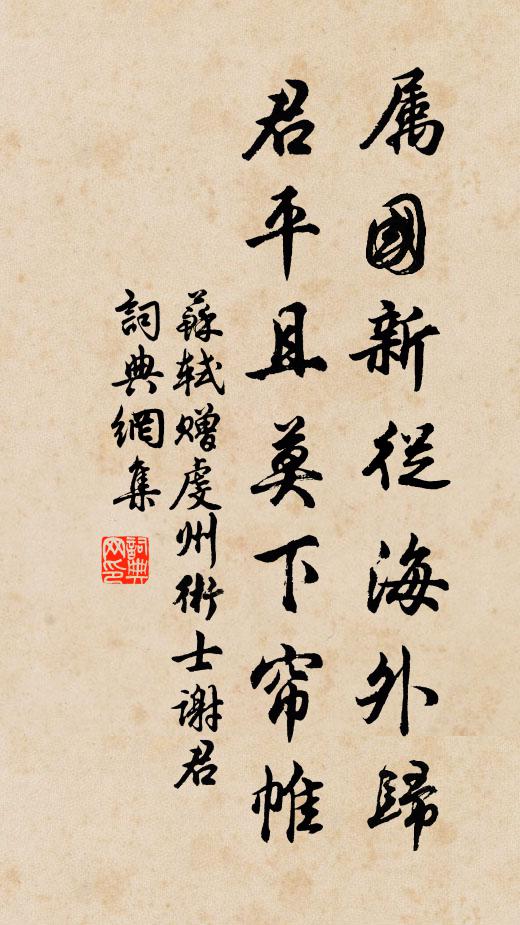 属國新從海外歸
君平且莫下帘帷
蘇軾赠虔州術士谢君
詞典網集
詞典网印